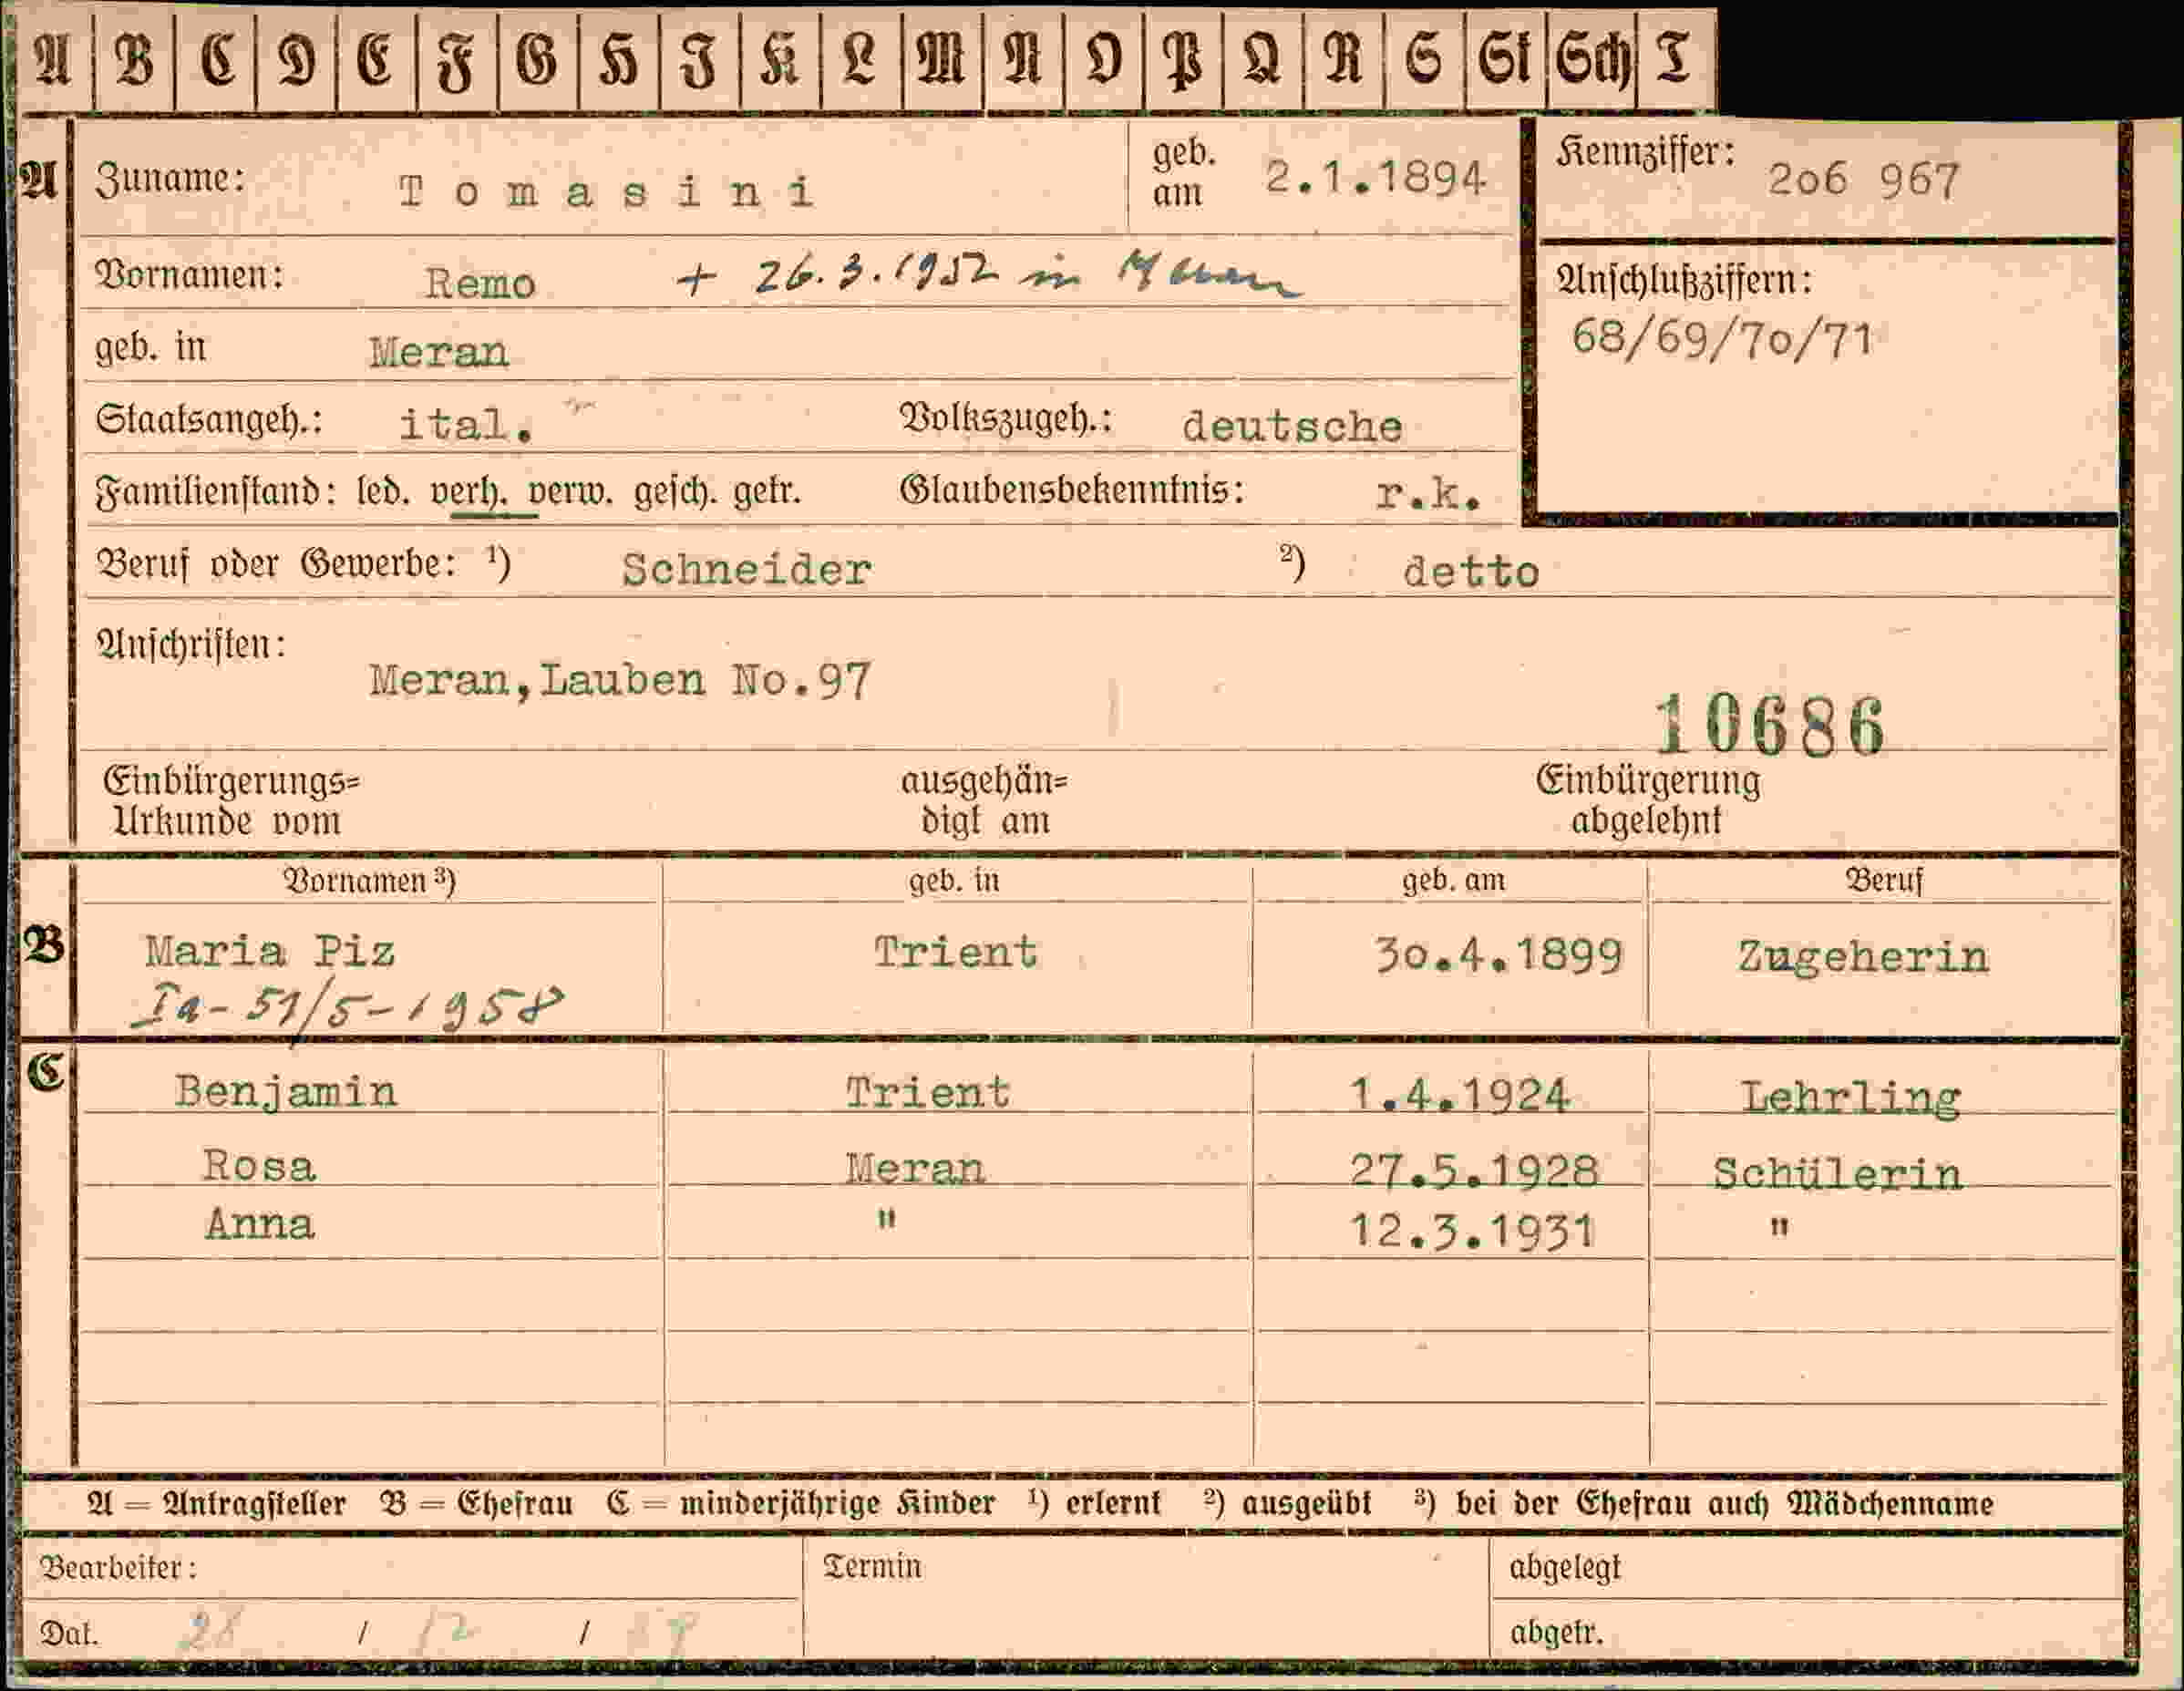 A B C D E F G H I K L M N O P Q R S St Sch T
A Zuname: Tomasini geb. am 2.1.1894 Kennziffer: 2o6 967
Vornamen: Remo + 26.3.1952 in Meran
Anschlußziffern:
68/69/7o/71
geb. in Meran
Staatsangeh.: ital. Volkszugeh.: deutsche
Familienstand: led. verh. verw. gesch. getr. Glaubensbekenntnis: r.k.
Beruf oder Gewerbe: 1) Schneider 2) detto
Anschriften:
Meran,Lauben No.97
10686
Einbürgerungs= Urkunde vom
ausgehän= digt am
Einbürgerung abgelehnt
Vornamen 3) geb. in geb. am Beruf
B Maria Piz Trient 3o.4.1899 Zugeherin
Ia-51/5-1958
C Benjamin Trient 1.4.1924 Lehrling
Rosa Meran 27.5.1928 Schülerin
Anna " 12.3.1931 "
A = Antragsteller B = Ehefrau C = minderjährige Kinder 1) erlernt 2) ausgeübt 3) bei der Ehefrau auch Mädchenname
Bearbeiter: Termin abgelegt
Dat. 28 / 12 / 39 abgetr.